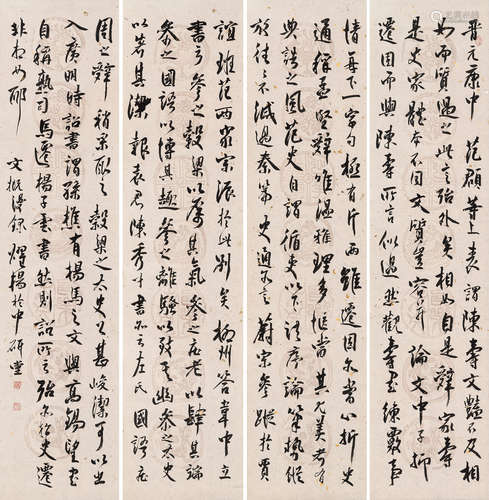 晋元康中范頵等上表謂陳壽文艷不及相
如而質過之此言殆外矣相如自是辭家壽
是史家體本不同文質豈容并論文中子抑
遷固而與陳壽所言似過然觀壽書練覈事
情每下一字一句極有斤兩雖遷固亦當心折史
通稱孟堅辭惟溫雅理多愜當其尤美者有
典誥之風范史自謂循吏以下諸序論筆勢縱
放往往不減過秦篇史通亦言蔚宗參蹤於賈
誼班范兩家宗派於此別矣柳州答韋中立
書云參之穀梁以厲其氣參之莊老以肆其端
參之國語以博其趣參之離騷以致其幽參之太史
以著其潔報袁君陳秀才書亦云左氏國語莊
周之辭稍采取之穀梁子太史公甚峻潔可以出
入廣明時詔書謂孫樵有揚馬之文與高錫望書
自稱熟司馬遷楊子雲書然則詔所云殆亦指史遷
非相如耶 文概漫錄 耀楊於中研